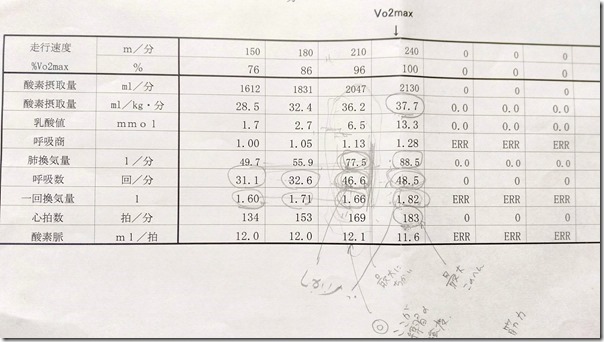 Vo2max
走行速度 m/分 150 180 210 240 0 0 0
%Vo2max % 76 86 96 100 0 0 0
酸素摂取量 ml/分 1612 1831 2047 2130 0 0 0
酸素摂取量 ml/kg・分 28.5 32.4 36.2 37.7 0.0 0.0 0.0
乳酸値 mmol 1.7 2.7 6.5 13.3 0.0 0.0 0.0
呼吸商 1.00 1.05 1.13 1.28 ERR ERR ERR
肺換気量 l/分 49.7 55.9 77.5 88.5 0.0 0.0 0.0
呼吸数 回/分 31.1 32.6 46.6 48.5 0 0 0
一回換気量 l 1.60 1.71 1.66 1.82 ERR ERR ERR
心拍数 拍/分 134 153 169 183 0 0 0
酸素脈 ml/拍 12.0 12.0 12.1 11.6 ERR ERR ERR
最大に
最大
筋力